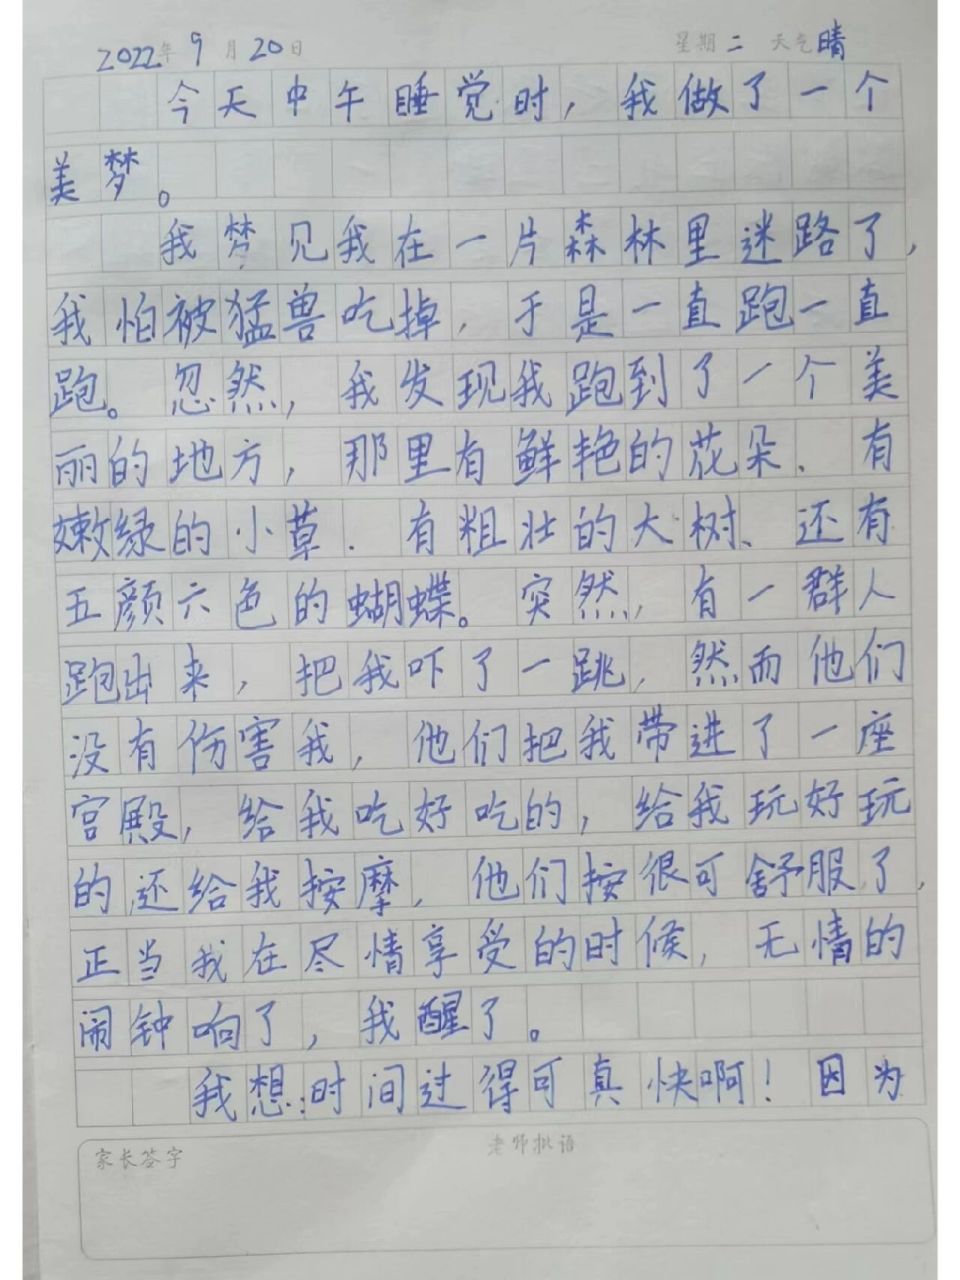 2022年9月20日 星期二 天气晴
今天中午睡觉时，我做了一个
美梦。
我梦见我在一片森林里迷路了，
我怕被猛兽吃掉，于是一直跑一直
跑。忽然，我发现我跑到了一个美
丽的地方，那里有鲜艳的花朵、有
嫩绿的小草．有粗壮的大树、还有
五颜六色的蝴蝶。突然，有一群人
跑出来，把我吓了一跳，然而他们
没有伤害我，他们把我带进了一座
宫殿，给我吃好吃的，给我玩好玩
的还给我按摩，他们按很可舒服了，
正当我在尽情享受的时候，无情的
闹钟响了，我醒了。
我想：时间过得可真快啊！因为
家长签字 老师批语